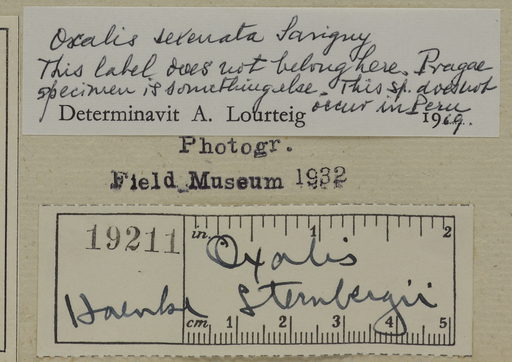 Oxalis sexenata Savigny
This label does not belong here. Pragae
specimen is something else. This sp. does not
occur in Peru
Determinavit A. Lourteig 1969.
Photogr.
Field Museum 1932
19211 in. 1 2
Oxalis
Haenke Sternbergii
cm 1 2 3 4 5